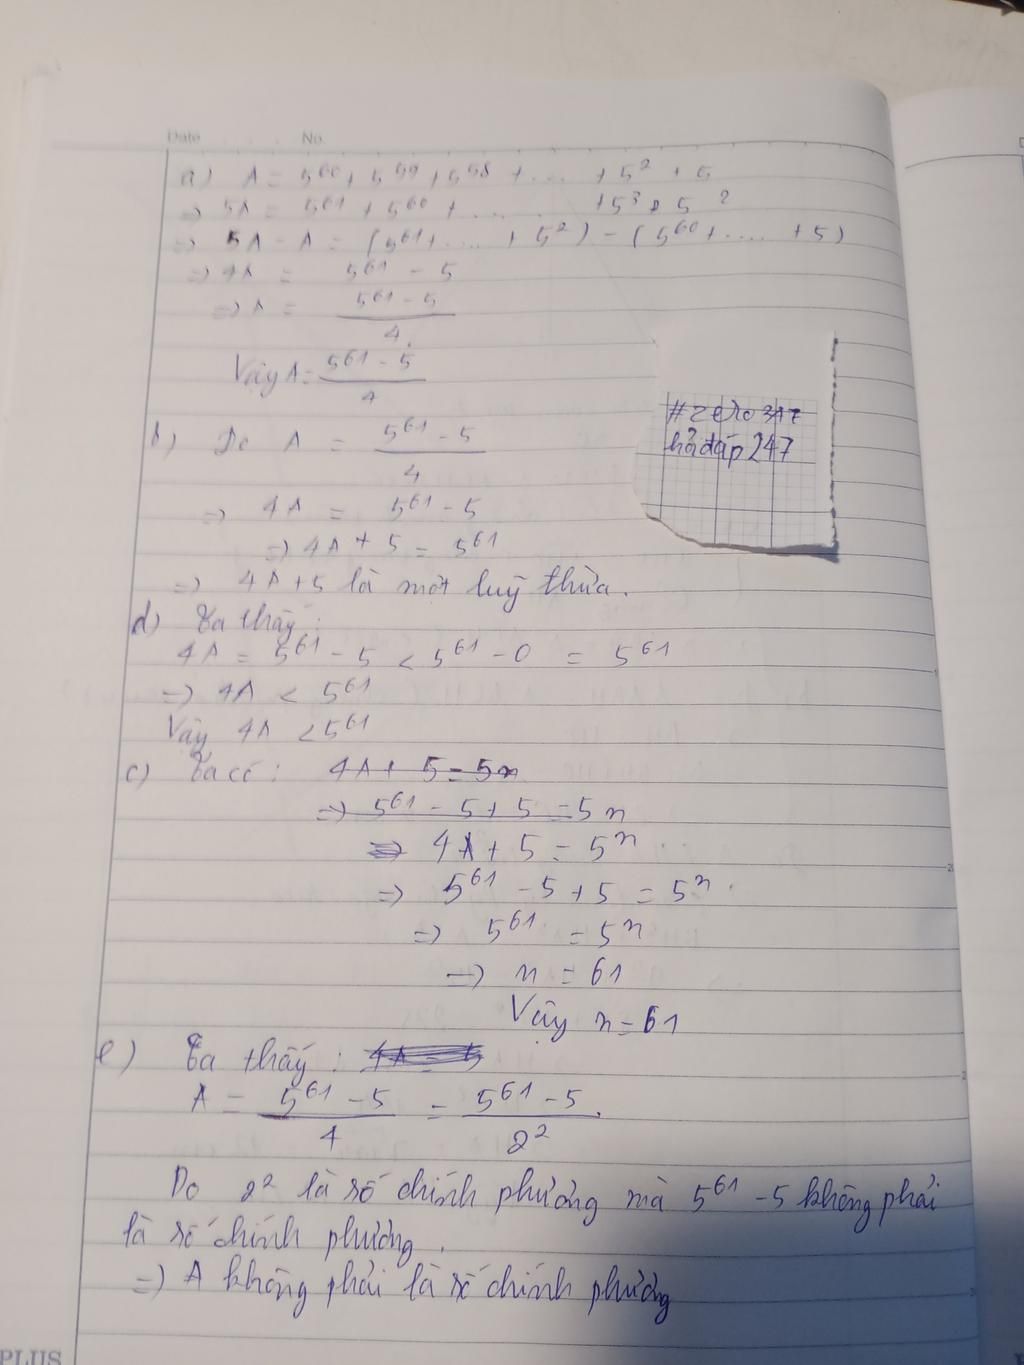 Date No.
a) A = 5^60 + 5^59 + 5^58 + .... + 5^2 + 5
=> 5A = 5^61 + 5^60 + .... + 5^3 + 5^2
=> 5A - A = (5^61 + .... + 5^2) - (5^60 + .... + 5)
=> 4A = 5^61 - 5
=> A = (5^61 - 5)/4.
Vậy A = (5^61 - 5)/4
#zero
hỏi đáp 247
b) Do A = (5^61 - 5)/4
=> 4A = 5^61 - 5
=> 4A + 5 = 5^61
=> 4A + 5 là một luỹ thừa.
d) Ta thấy :
4A = 5^61 - 5 < 5^61 - 0 = 5^61
=> 4A < 5^61
Vậy 4A < 5^61
c) Ta có : 4A + 5 = 5n
=> 5^61 - 5 + 5 = 5n
=> 4A + 5 = 5^n
=> 5^61 - 5 + 5 = 5^n
=> 5^61 = 5^n
=> n = 61
Vậy n = 61
e) Ta thấy :
A = (5^61 - 5)/4 = (5^61 - 5)/2^2.
Do 2^2 là số chính phương mà 5^61 - 5 không phải
là số chính phương.
=> A không phải là số chính phương
PLUS